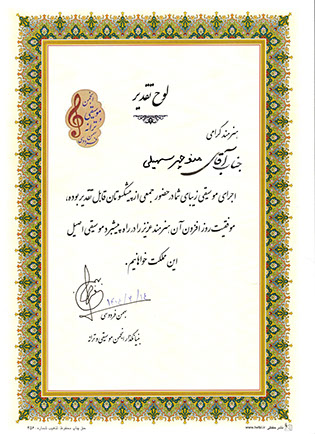 لوح تقدیر
انجمن
موسیقی
ترانه
هنرمند گرامی
جناب آقای منوچهر سهیلی
اجرای موسیقی زیبای شما در حضور جمعی از پیشکسوتان قابل تقدیر بوده،
موفقیت روز افزون آن هنرمند عزیز را در راه پیشبرد موسیقی اصیل
این مملکت خواهانیم.
بهمن فردوسی
بنیانگذار انجمن موسیقی و ترانه